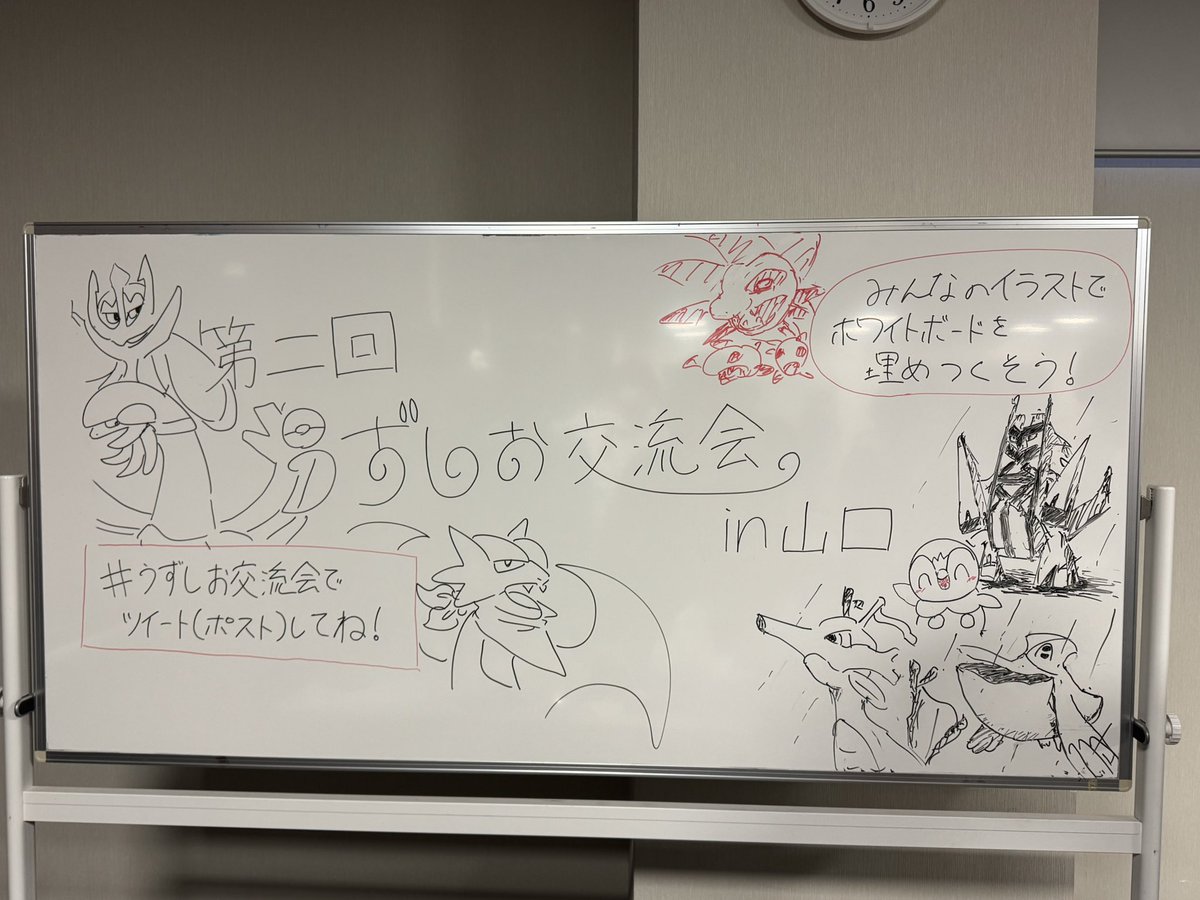 6
第二回
ずしお交流会。
in山口
みんなのイラストで
ホワイトボードを
埋めつくそう!
#うずしお交流会で
ツイート(ポスト)してね!